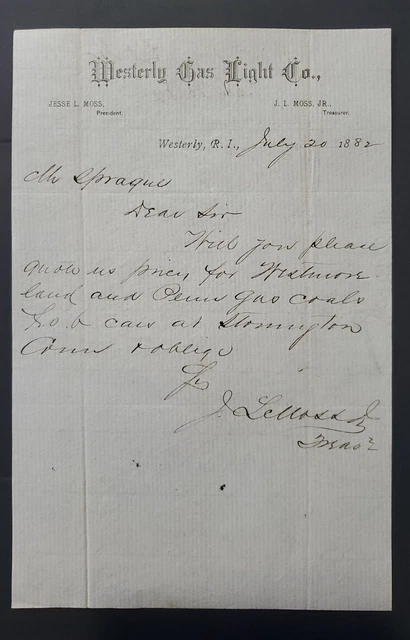 Westerly Gas Light Co.,
JESSE L. MOSS, J. L. MOSS, JR.,
President. Treasurer.
Westerly, R. I., July 20 1882
Mr Sprague
Dear Sir
Will you please
quote us prices for Westmore-
land and Penn Gas coals
f.o.b cars at Stonington
Conn & oblige
J. L. Moss Jr
Treasr